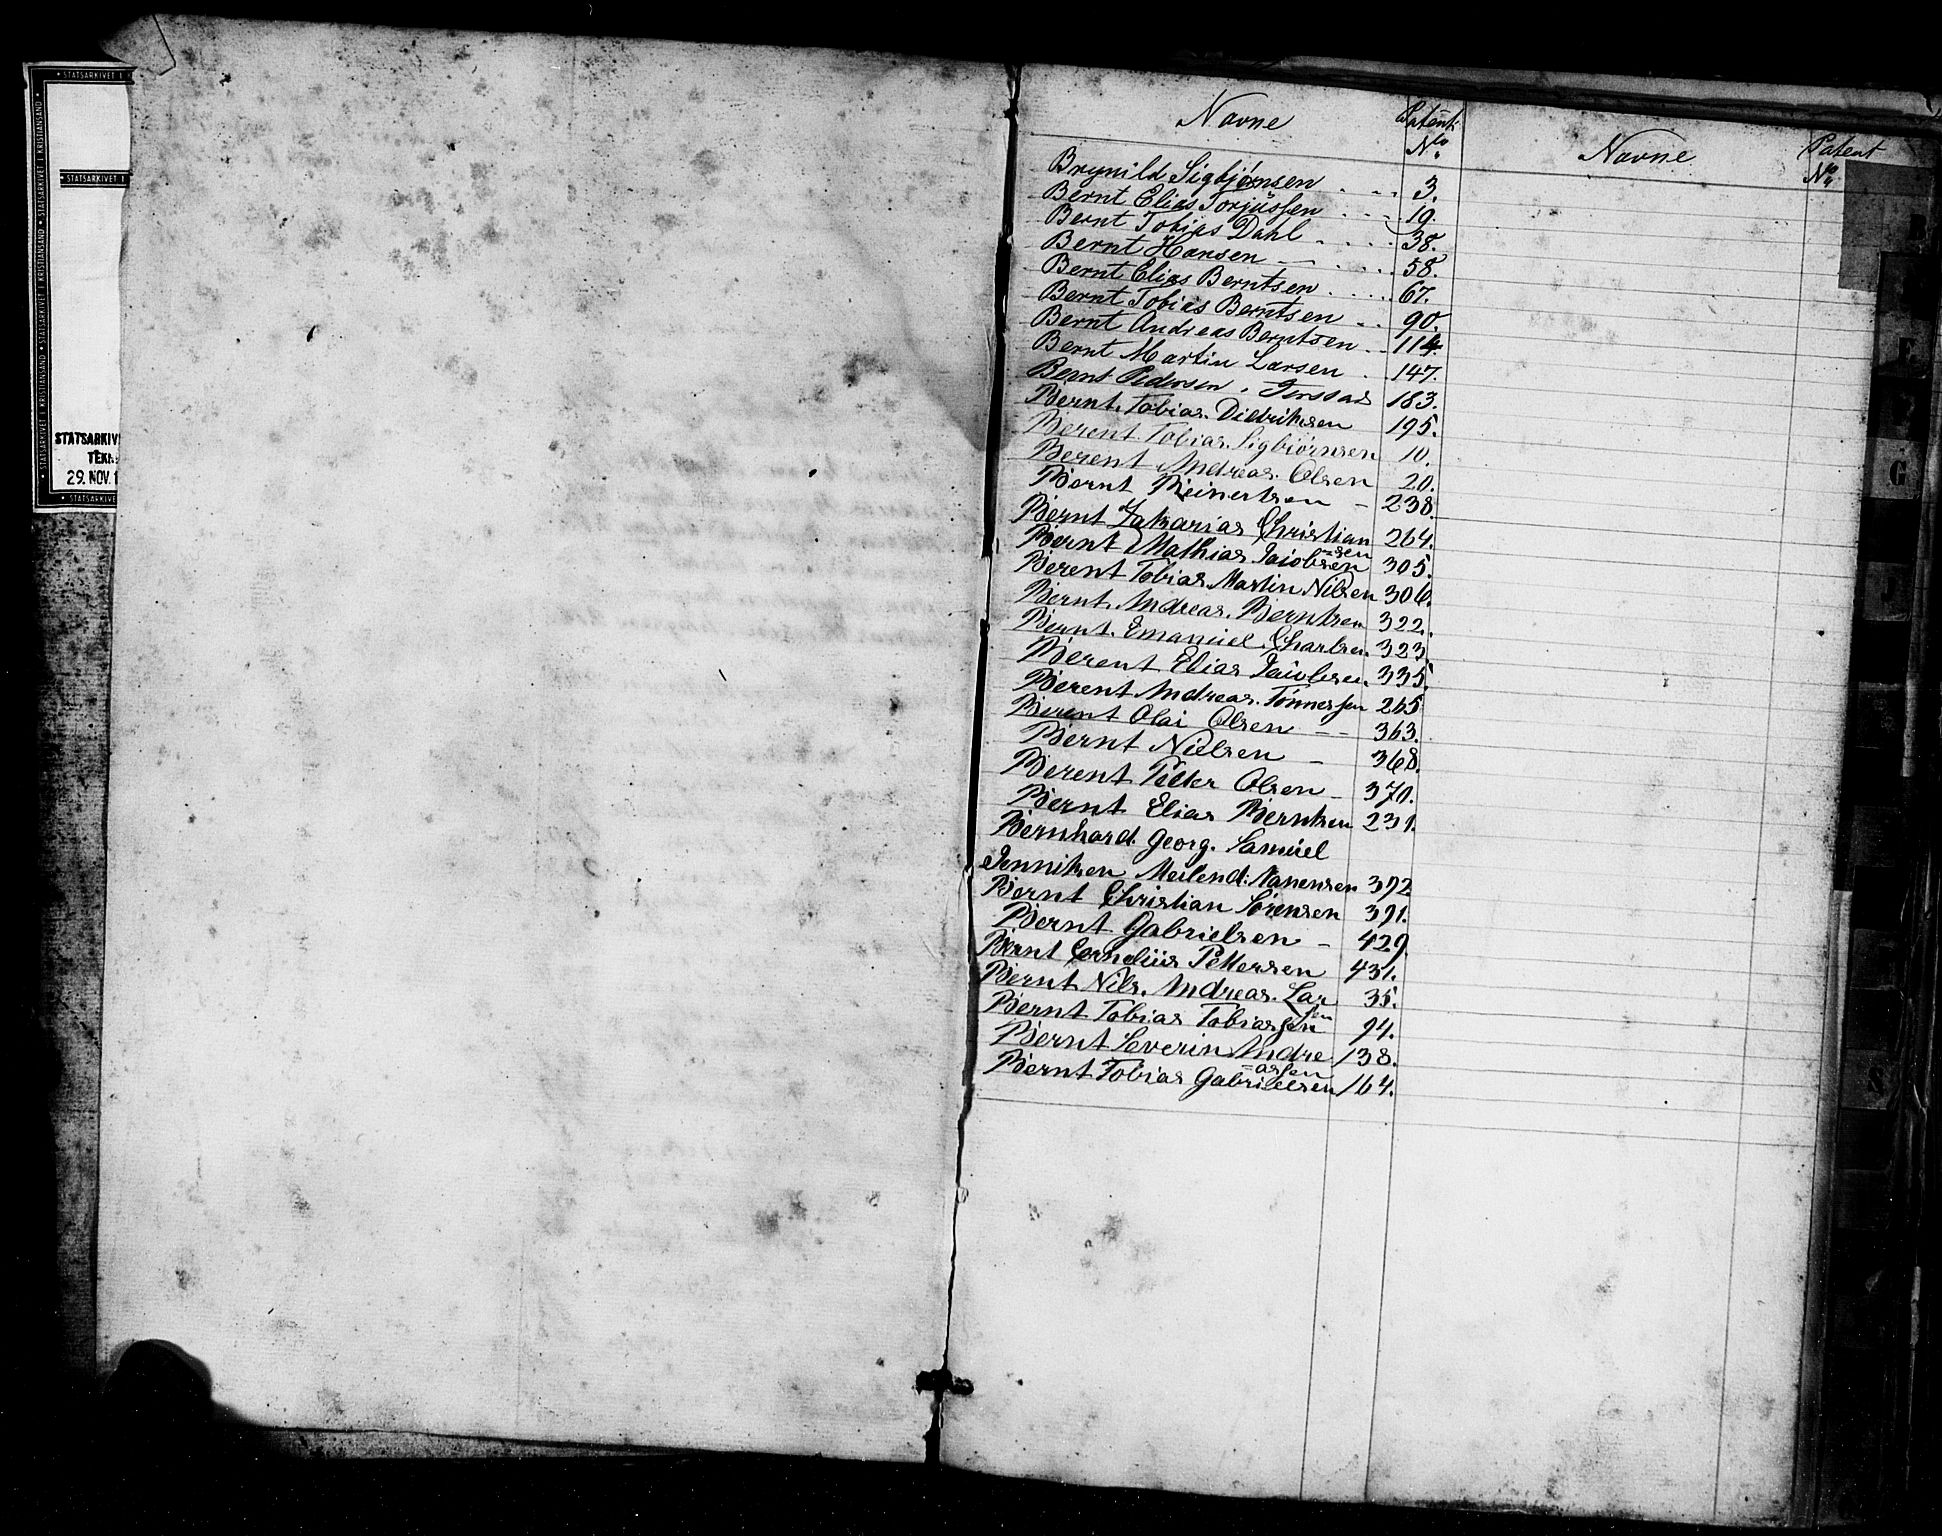 STATSARKIVET I
STATSARKIVET I
STATSARKIVET I KRISTIANSAND • STATSARKIVET I KRISTIANSAND • STATSARKIVET I KRISTIANSAND
STATSARKIV
TEKN.
29. NOV. 1
STATSARKIVET I
Navne Patent No Navne Patent No
Brynild Sigbjørnsen 3.
Bernt Elias Torjussen 19.
Bernt Tobias Dahl 38.
Bernt Hansen 58.
Bernt Elias Berntsen 67.
Bernt Tobias Berntsen 90.
Bernt Andreas Berntsen 114.
Bernt Martin Larsen 147.
Bernt Pedersen 183.
Bernt Tobias Diedriksen 195.
Berent Tobias Sigbiørnsen 10.
Berent Andreas Olsen 20.
Bernt Reinertsen 238.
Bernt Zakarias Christian 264.
=sen
Bernt Mathias Jacobsen 305.
Berent Tobias Martin Nilsen 306.
Bernt Andreas Berntsen 322.
Bernt Emanuel Charlsen 323
Berent Elias Jacobsen 335.
Berent Andreas Tønnessen 265
Berent Olai Olsen 363.
Bernt Nielsen 368.
Berent Petter Olsen 370.
Bernt Elias Berntsen 231.
Bernhard Georg Samuel
392
Bernt Christian Sørensen 391.
Bernt Gabrielsen 429
Bernt Cornelius Pettersen 431.
Bernt Nils Andreas Lar 35.
sen
Bernt Tobias Tobiassen 94.
Bernt Severin Andre 138.
=assen
Bernt Tobias Gabrielsen 164.
B
E
G
J
S